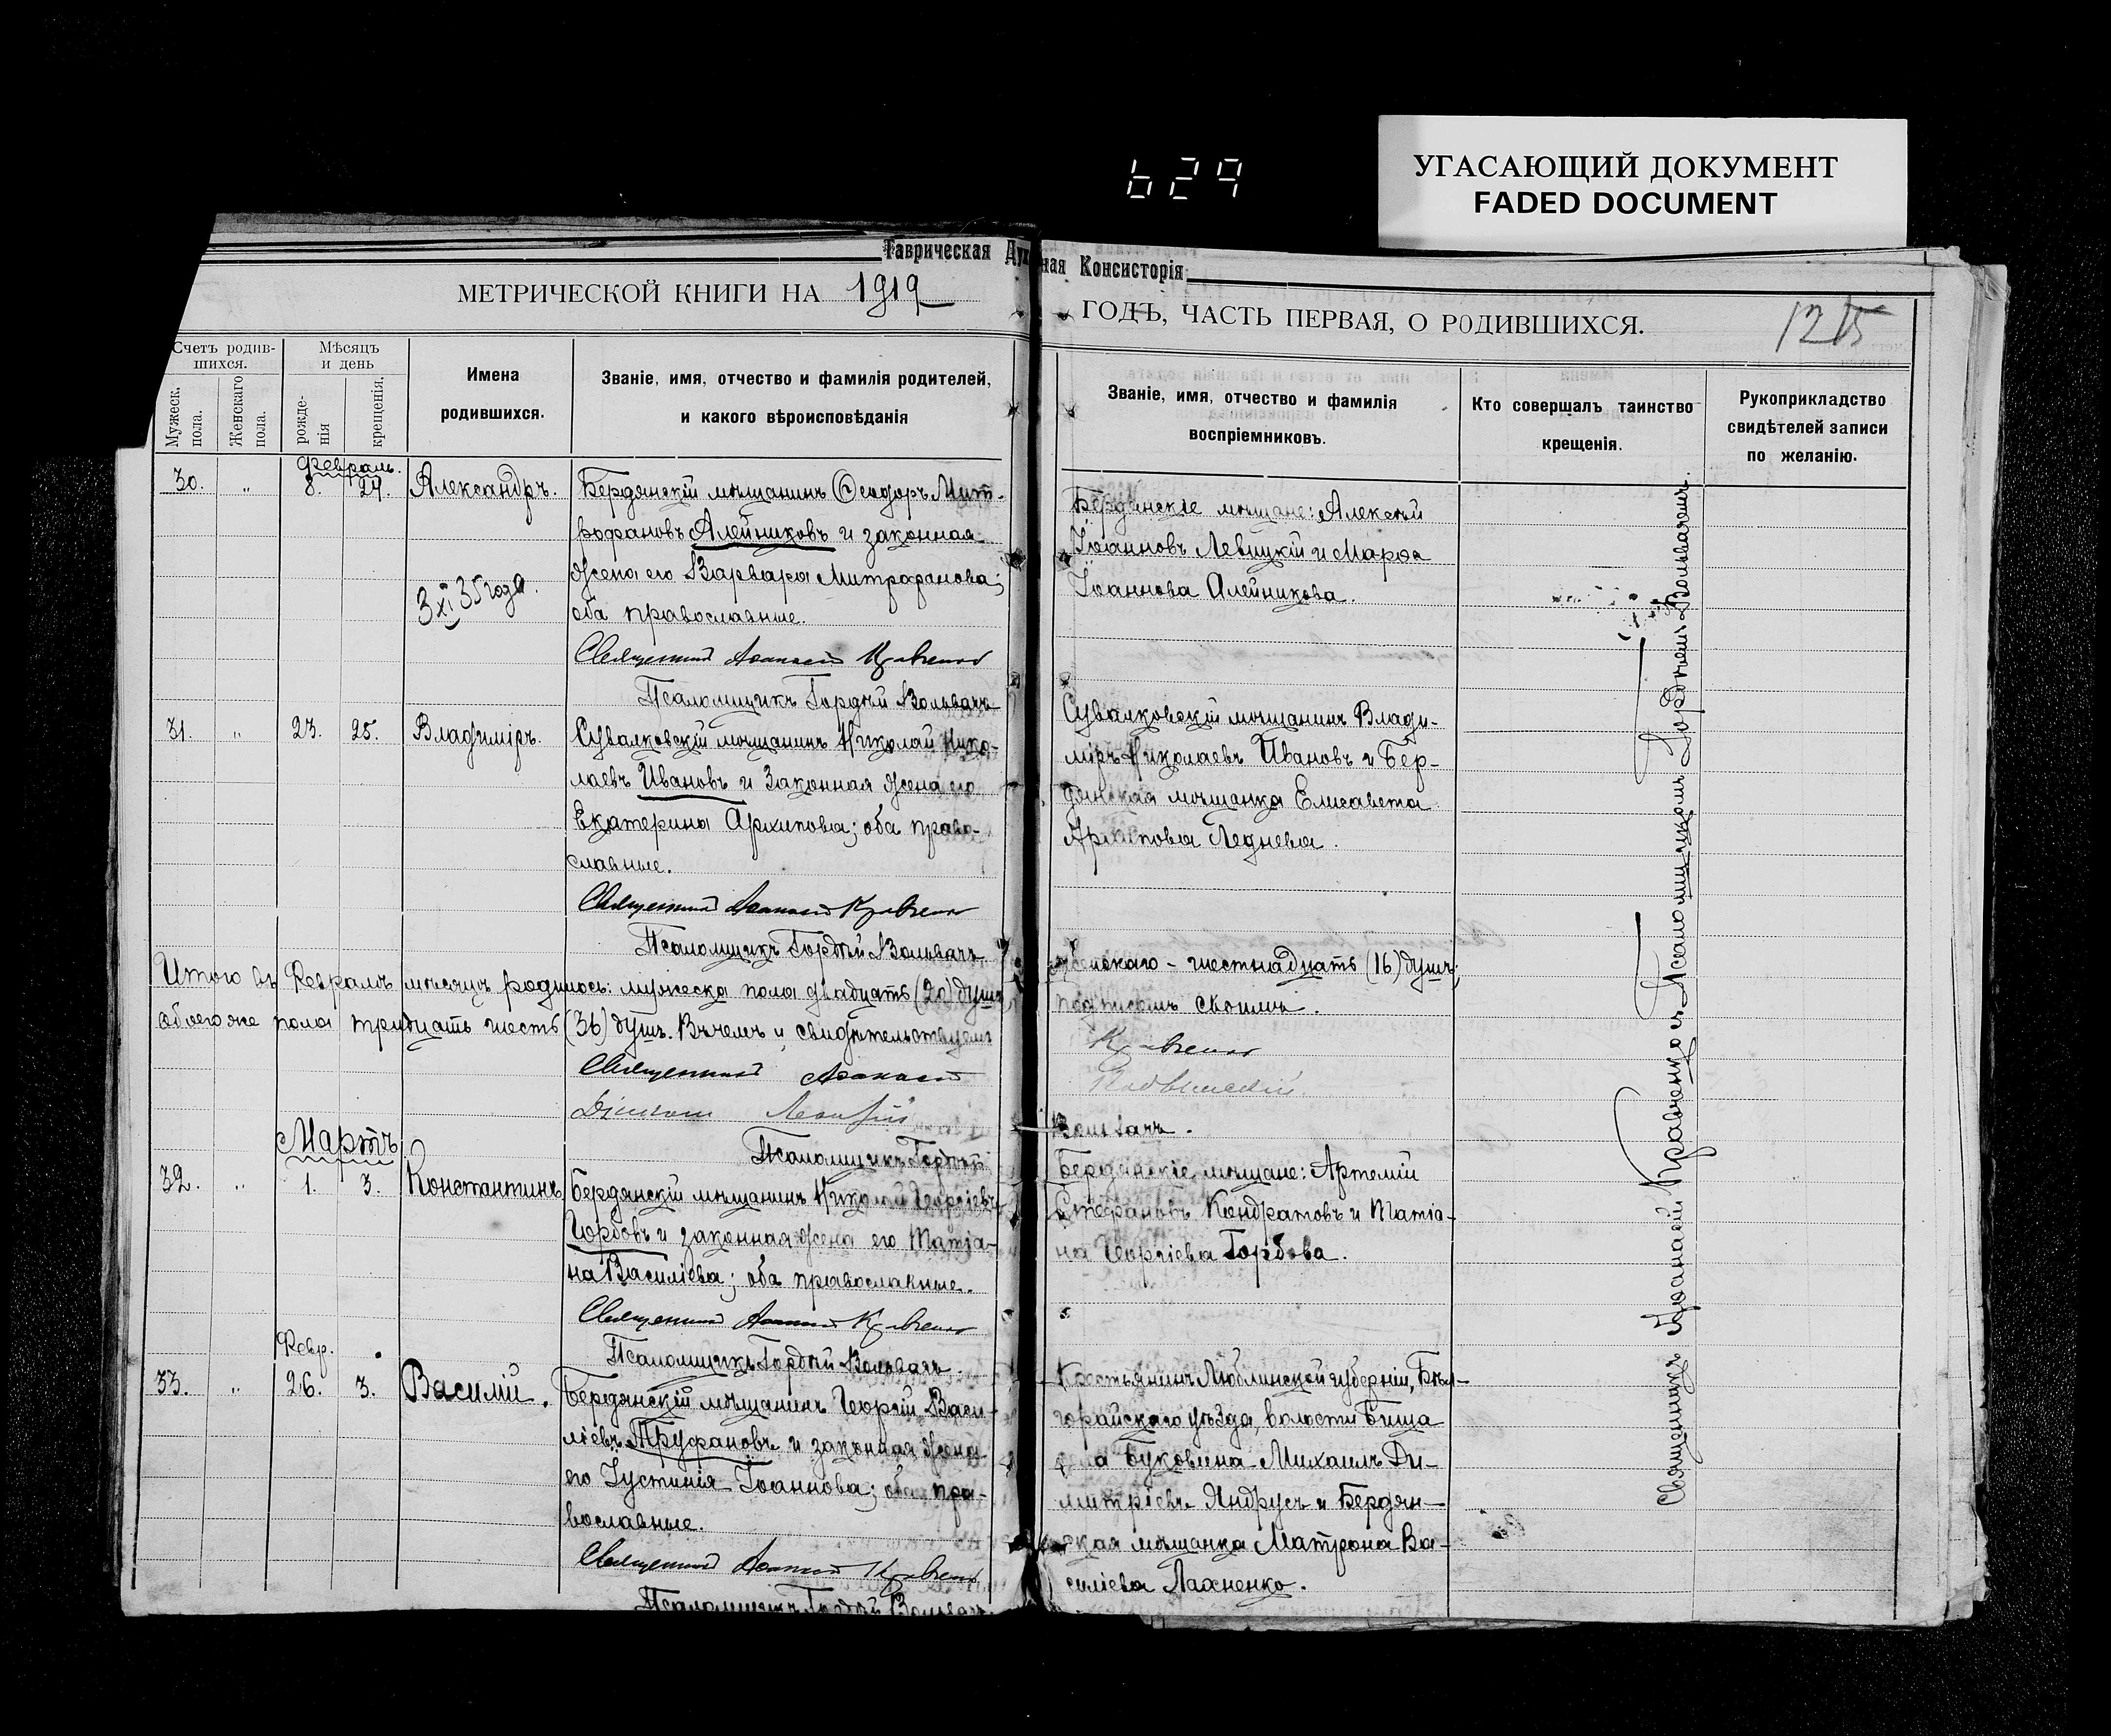 629
УГАСАЮЩИЙ ДОКУМЕНТ
FADED DOCUMENT
Таврическая Духовная Консисторія
МЕТРИЧЕСКОЙ КНИГИ НА 1919
ГОДЪ, ЧАСТЬ ПЕРВАЯ, О РОДИВШИХСЯ.
Счетъ родив-
шихся.
Мужеск. пола.
Женскаго пола.
Мѣсяцъ
и день
рожде-
нія
крещенія.
Имена
родившихся.
Званіе, имя, отчество и фамилія родителей,
и какого вѣроисповѣданія
Званіе, имя, отчество и фамилія
воспріемниковъ.
Кто совершалъ таинство
крещенія.
Рукоприкладство
свидѣтелей записи
по желанію.
Февраль.
30. " 8. 24. Александръ.
3 XI 35 года.
Бердянскій мѣщанинъ Ѳеодоръ Мит-
рофановъ Алейниковъ и законная
жена его Варвара Митрофанова;
оба православные.
Священник Афанасий Кравченко
Псаломщикъ Гордѣй Вольвачъ
Бердянскіе мѣщане: Алексѣй
Іоанновъ Левицкій и Марѳа
Іоаннова Алейникова.
31. " 23. 25. Владиміръ.
Сувалковскій мѣщанинъ Николай Нико-
лаевъ Ивановъ и законная жена его
Екатерина Архипова; оба право-
славные.
Священник Афанасий Кравченко
Псаломщикъ Гордѣй Вольвачъ
Сувалковскій мѣщанинъ Влади-
міръ Николаевъ Ивановъ и Бер-
дянская мѣщанка Елисавета
Архипова Леднева.
Итого въ Февралѣ мѣсяцѣ родилось: мужеска пола двадцать (20) душъ,
женскаго - шестнадцать (16) душъ;
обоего же пола тридцать шесть (36) душъ. Въ чемъ и свидѣтельствуемъ
подписомъ своимъ.
Священник Афанасий Кравченко
Псаломщикъ Гордѣй Вольвачъ.
Мартъ
32. " 1. 3. Константинъ
Бердянскій мѣщанинъ Николай Георгіевъ
Горбовъ и законная жена его Татіа-
на Василіева; оба православные.
Священник Афанасий Кравченко
Псаломщикъ Гордѣй Вольвачъ.
Бердянскіе мѣщане: Артемій
Стефановъ Кондратовъ и Татіа-
на Георгіева Горбова.
Февр.
33. " 26. 3. Василій.
Бердянскій мѣщанинъ Георгій Васи-
ліевъ Труфановъ и законная жена
его Іустинія Іоаннова; оба пра-
вославные.
Священник Афанасий Кравченко
Псаломщикъ Гордѣй Вольвачъ.
Крестьянинъ Люблинской губерніи, Бѣл-
горайскаго уѣзда, волости Бища
села Буковина Михаилъ Ди-
митріевъ Яндрусъ и Бердян-
ская мѣщанка Матрона Ва-
силіева Лахненко.
Священникъ Афанасій Кравченко съ Псаломщикомъ Гордѣемъ Вольвачемъ.